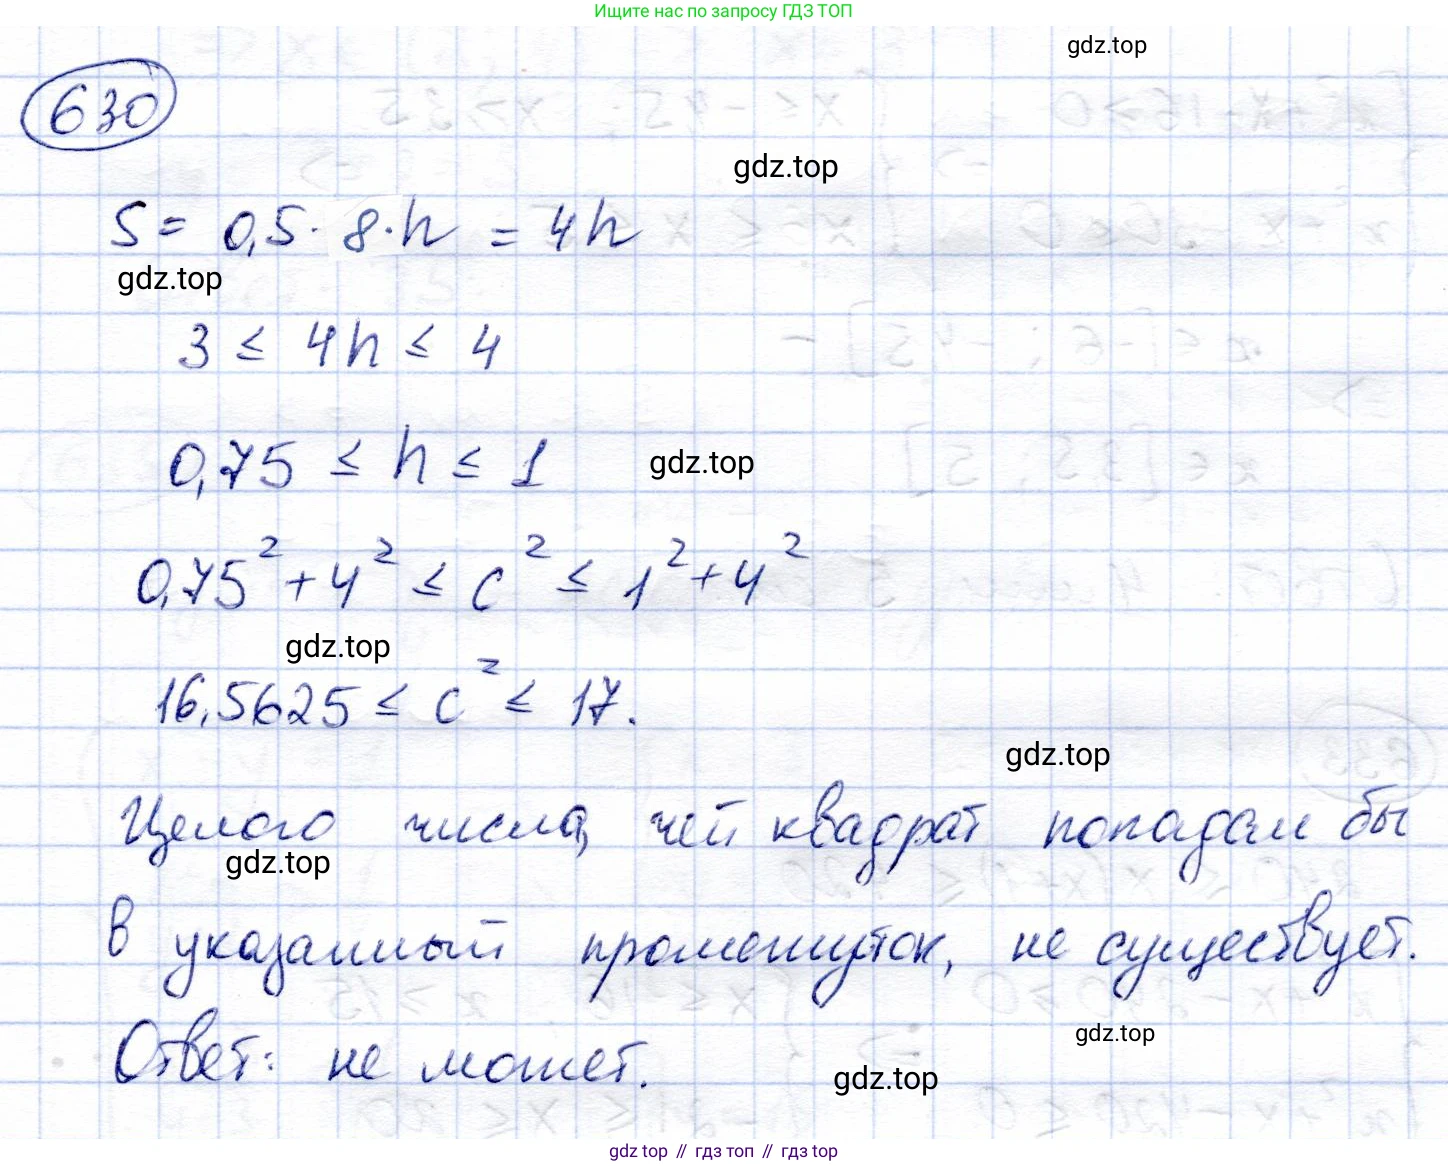 Ищите нас по запросу ГДЗ ТОП
gdz.top
630
gdz.top
S = 0,5 · 8 · h = 4h
gdz.top
3 ≤ 4h ≤ 4
0,75 ≤ h ≤ 1
gdz.top
0,75² + 4² ≤ c² ≤ 1² + 4²
gdz.top
16,5625 ≤ c² ≤ 17.
gdz.top
Целого числа, чей квадрат попадал бы
gdz.top
в указанный промежуток, не существует.
gdz.top
Ответ: не может.
gdz.top
gdz.top // гдз топ // гдз top